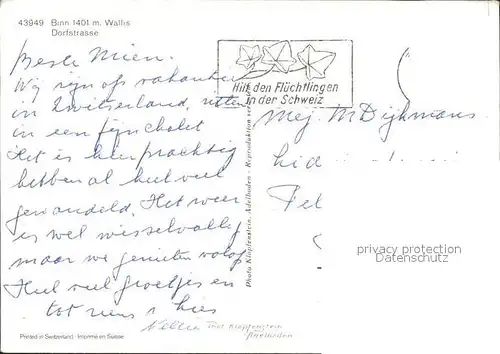 43949 Binn 1401 m. Wallis
Dorfstrasse
Beste Mien.
Wij zijn op vakantie
in Zwitserland, zitten
in een fijn chalet
Het is hier prachtig
hebben al heel veel
gewandeld. Het weer
is wel wisselvallig
maar we genieten volop
Heel veel groetjes en
tot ziens
Nellie
Hilf den Flüchtlingen
in der Schweiz
Mej. M Dijkmans
Photo Klopfenstein, Adelboden - Reproduktion
privacy protection
Datenschutz
Photo Klopfenstein
Adelboden
Printed in Switzerland - Imprimé en Suisse